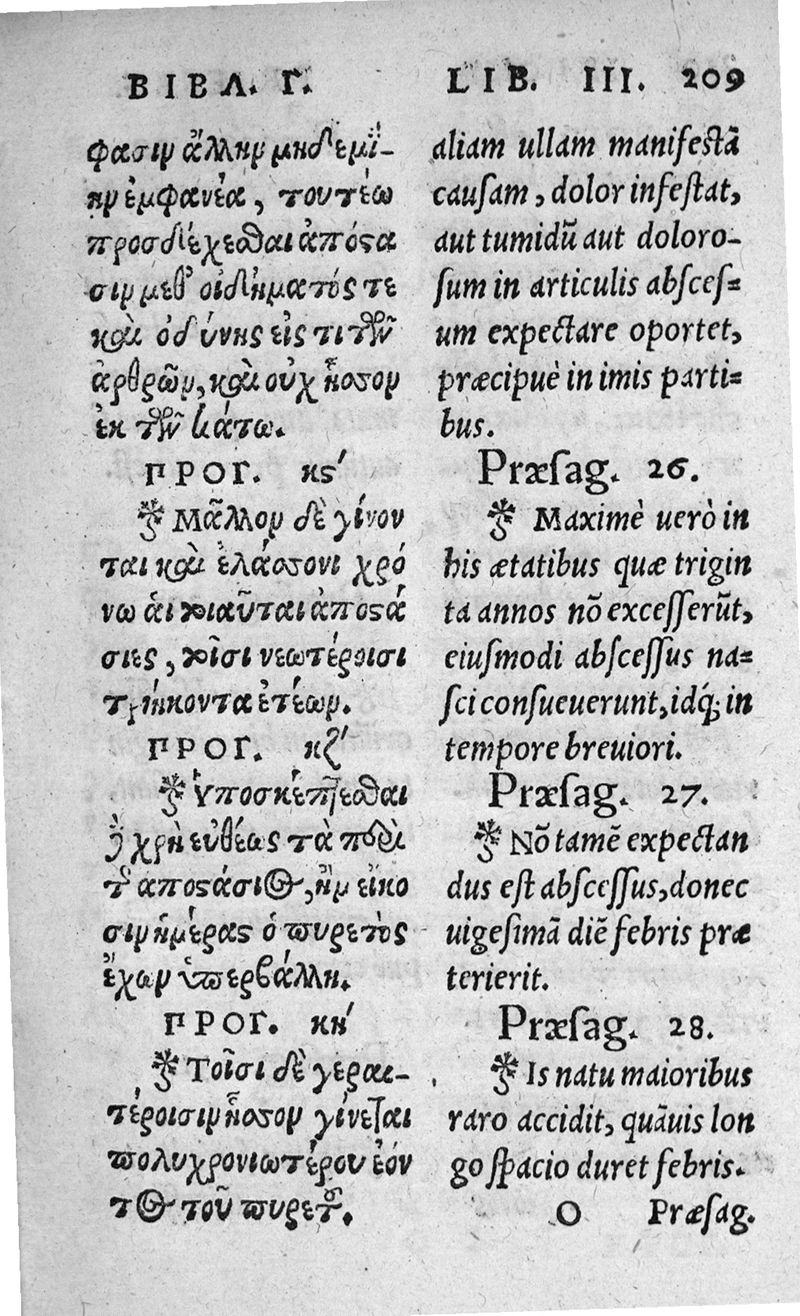 ΒΙΒΛ. Γ.
φασιν ἄλλην μηδεμί-
ην ἐμφανέα, τουτέω
προσδέχεσθαι ἀπόστα
σιν μεθ' οἰδήματός τε
καὶ ὀδύνης εἰς τι τῶν
ἀρθρῶν, καὶ οὐχ ἧσσον
ἐκ τῶν κάτω.
ΠΡΟΓ. κϛ'
Μᾶλλον δὲ γίνον
ται καὶ ἐλάσσονι χρό
νω ἁι τοιαῦται ἀποστά
σιες, τοῖσι νεωτέροισι
τριήκοντα ἐτέων.
ΠΡΟΓ. κζ'
Ὑποσκέπτεσθαι
δὲ χρὴ εὐθέως τὰ περὶ
τῆς αποστάσιος, ἢν εἴκο
σιν ἡμέρας ὁ πυρετὸς
ἔχων ὑπερβάλλη.
ΠΡΟΓ. κη'
Τοῖσι δὲ γεραι-
τέροισιν ἧσσον γίνεται
πολυχρονιωτέρου ἐόν
τος τοῦ πυρετοῦ.
LIB. III. 209
aliam ullam manifestā
causam, dolor infestat,
aut tumidū aut doloro-
sum in articulis abscess=
um expectare oportet,
præcipuè in imis parti=
bus.
Præsag. 26.
Maximè uerò in
his ætatibus quæ trigin
ta annos nō excesserūt,
eiusmodi abscessus na=
sci consueuerunt, idq; in
tempore breuiori.
Præsag. 27.
Nō tamē expectan
dus est abscessus, donec
uigesimā diē febris præ
terierit.
Præsag. 28.
Is natu maioribus
raro accidit, quāuis lon
go spacio duret febris.
O Præsag.